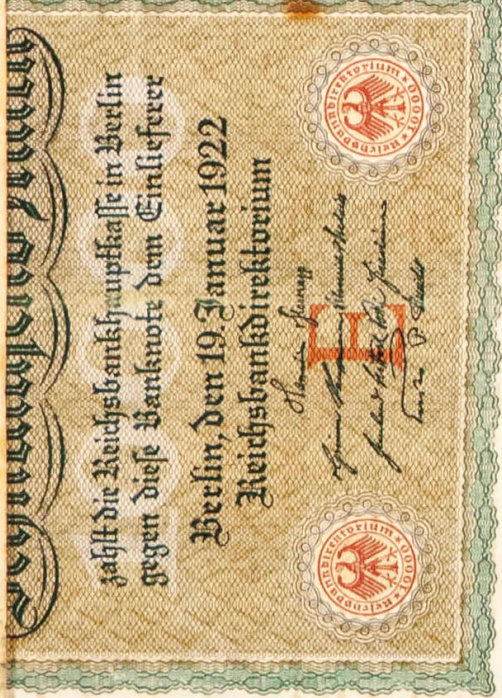 Zehntausend Mark
zahlt die Reichsbankhauptkasse in Berlin
gegen diese Banknote dem Einlieferer
10000
Berlin, den 19. Januar 1922
Reichsbankdirektorium
E
Reichsbankdirektorium * 10000 *
Reichsbankdirektorium * 10000 *